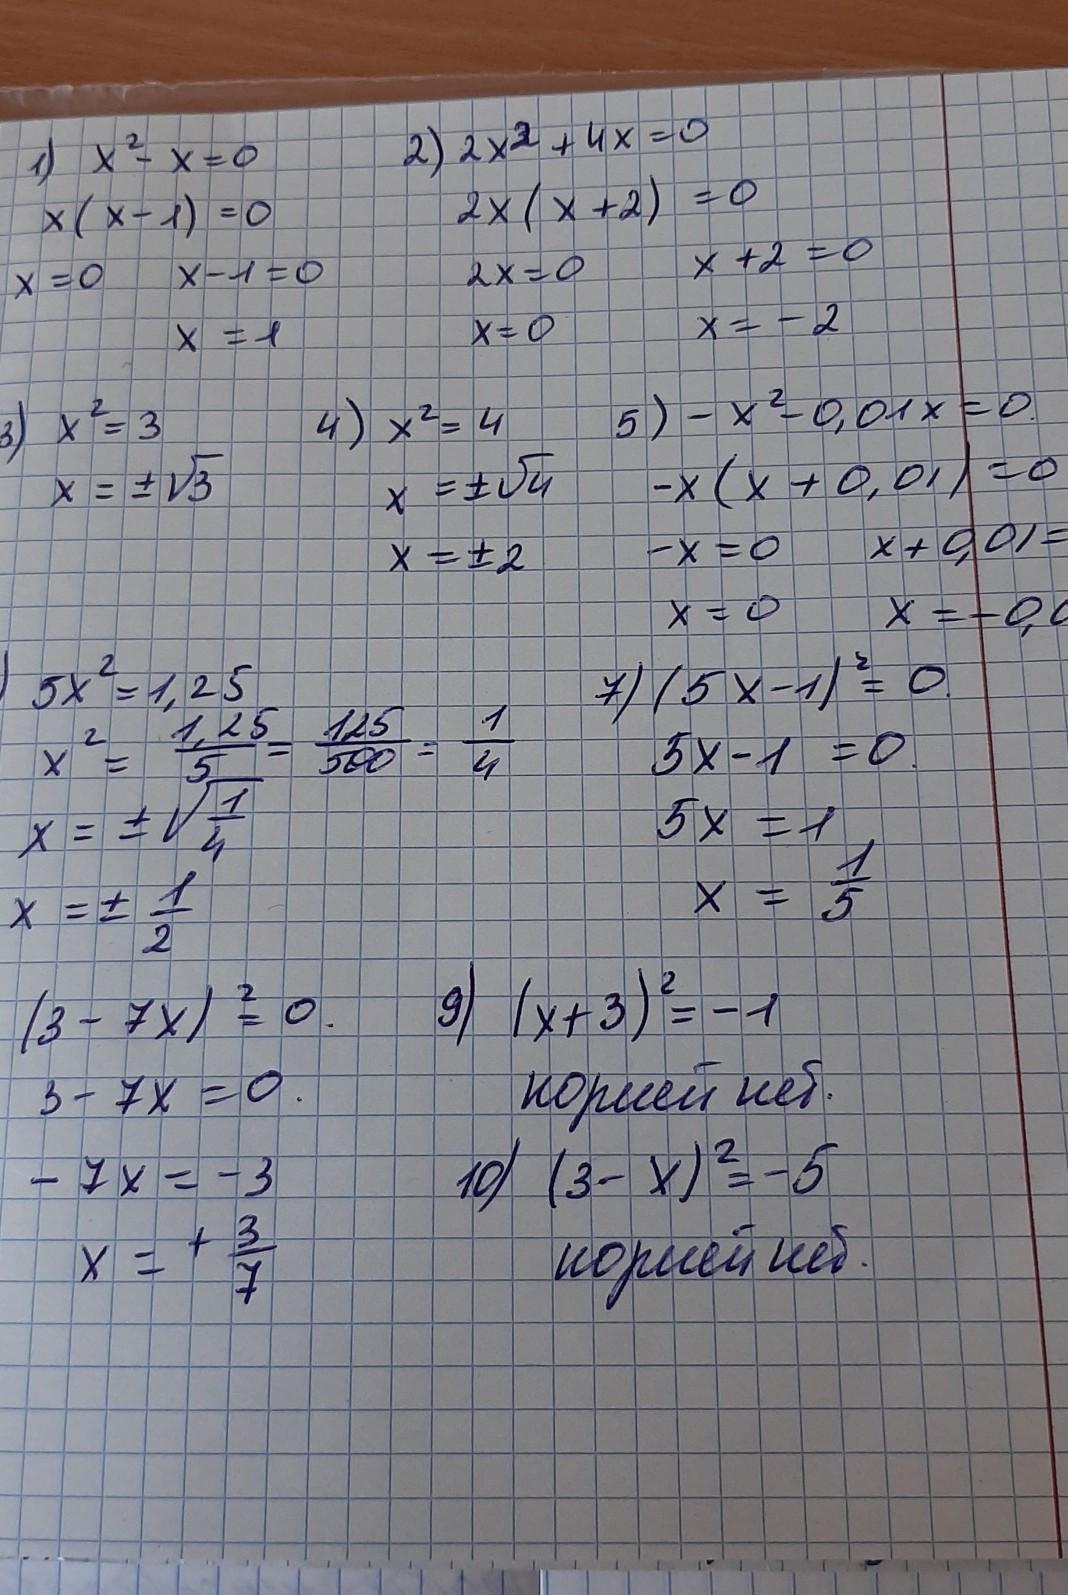 1) x² - x = 0
x(x-1) = 0
x = 0   x-1 = 0
x = 1
2) 2x² + 4x = 0
2x(x+2) = 0
2x = 0   x+2 = 0
x = 0   x = -2
3) x² = 3
x = ±√3
4) x² = 4
x = ±√4
x = ±2
5) -x² - 0,01x = 0.
-x(x + 0,01) = 0
-x = 0   x + 0,01 =
x = 0   x = -0,0
) 5x² = 1,25
x² = 1,25/5 = 125/500 = 1/4
x = ±√1/4
x = ± 1/2
7) (5x-1)² = 0.
5x-1 = 0.
5x = 1
x = 1/5
(3 - 7x)² = 0.
3 - 7x = 0.
-7x = -3
x = + 3/7
9) (x+3)² = -1
корней нет.
10) (3-x)² = -5
корней нет.